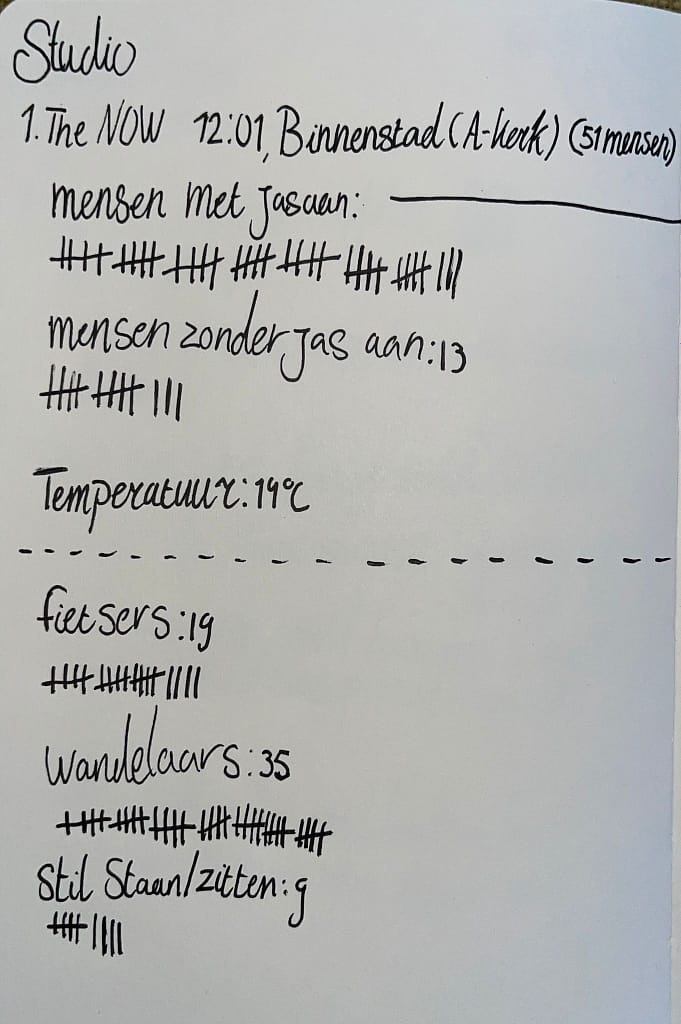 Studio
1. The NOW 12:01, Binnenstad (A-kerk) (51 mensen)
mensen met jas aan:
mensen zonder jas aan: 13
Temperatuur: 19°C
fietsers: 19
wandelaars: 35
Stil Staan/zitten: 9